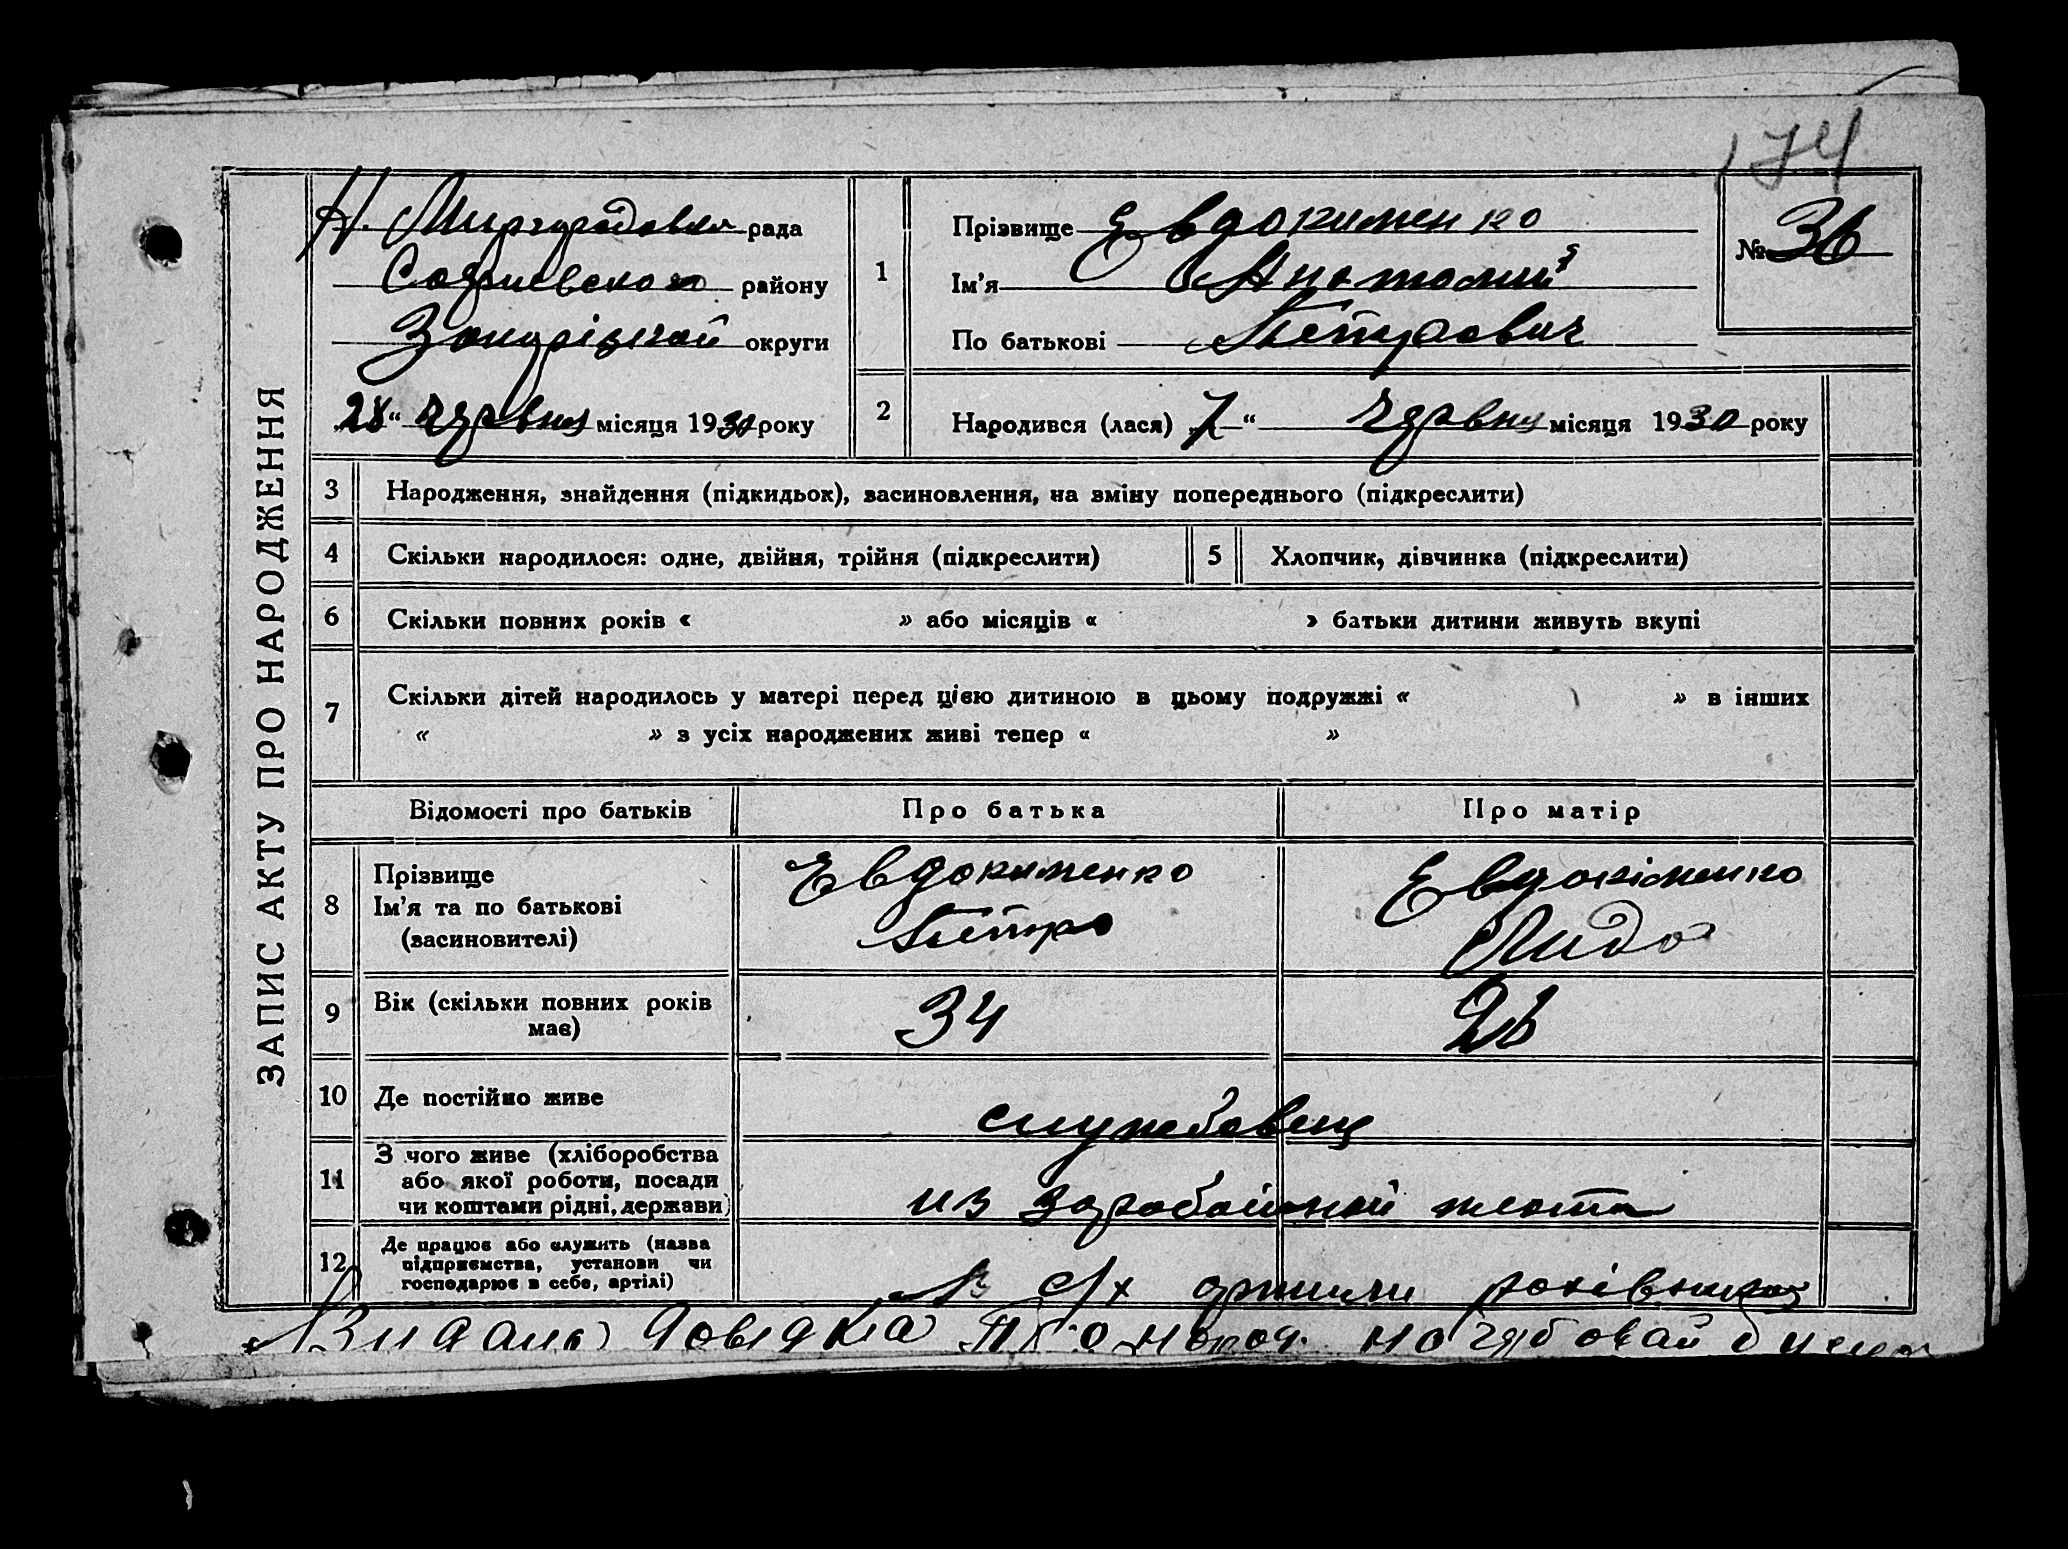 174
ЗАПИС АКТУ ПРО НАРОДЖЕННЯ
Н. рада
Софиевского району
Запорізької округи
„28“ червня місяця 1930 року
1
Прізвище Евдокименко
Ім'я Анатолий
По батькові Петрович
№ 36
2
Народився (лася) „7“ червня місяця 1930 року
3 Народження, знайдення (підкидьок), засиновлення, на зміну попереднього (підкреслити)
4 Скільки народилося: одне, двійня, трійня (підкреслити)
5 Хлопчик, дівчинка (підкреслити)
6 Скільки повних років « » або місяців « » батьки дитини живуть вкупі
7 Скільки дітей народилось у матері перед цією дитиною в цьому подружжі « » в інших
« » з усіх народжених живі тепер « »
Відомості про батьків Про батька Про матір
8 Прізвище
Ім'я та по батькові
(засиновителі)
Евдокименко
Петро
Евдокіменко
Лида
9 Вік (скільки повних років
має)
34 26
10 Де постійно живе
службовец
11 З чого живе (хліборобства
або якої роботи, посади
чи коштами рідні, держави)
из заработной
12 Де працює або служить (назва
підприємства, установи чи
господарює в себе, артілі)
В с/х артили
довидка про народ.